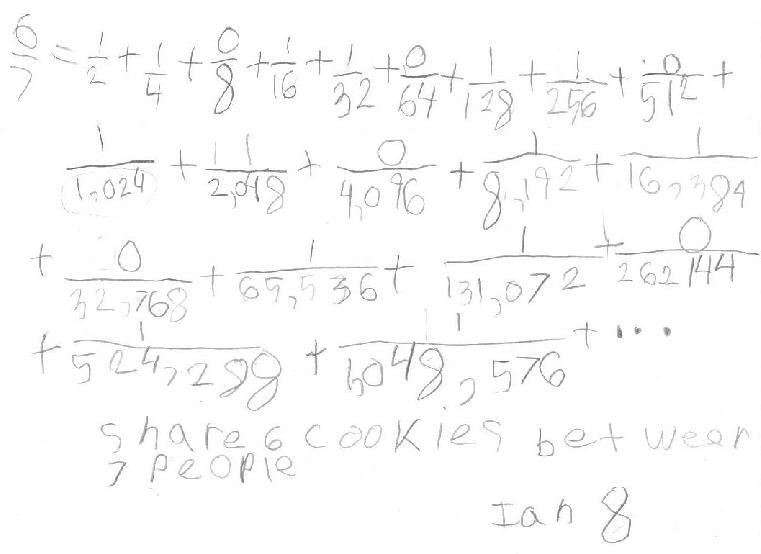 6/7 = 1/2 + 1/4 + 0/8 + 1/16 + 1/32 + 0/64 + 1/128 + 1/256 + 0/512 +
1/1,024 + 1/2,048 + 0/4,096 + 1/8,192 + 1/16,384
+ 0/32,768 + 1/65,536 + 1/131,072 + 0/262144
+ 1/524,288 + 1/1,048,576 + ...
share 6 cookies between
7 people
Ian 8